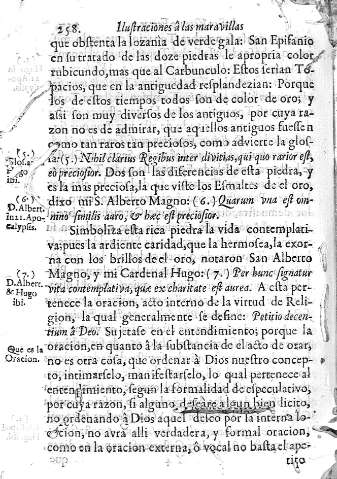 258. Ilustraciones â las maravillas
que obstenta la lozania de verde gala: San Epifanio
en su tratado de las doze piedras le apropria color
rubicundo, mas que al Carbunculo: Estos serian To-
pacios, que en la antiguedad resplandezian: Porque
los de estos tiempos todos son de color de oro; y
assi son muy diversos de los antiguos, por cuya ra
zon no es de admirar, que aquellos antiguos fuessen
como tan raros tan preciosos, como advierte la glos-
sa: (5.) Nihil clarius Regibus inter divitias, qui quo rarior est,
eò preciosior. Dos son las diferencias de esta piedra, y
es la mas preciosa, la que viste los Esmaltes de el oro,
dixo mi S. Alberto Magno: (6.) Quarum vna est om-
ninò similis auro, & hæc est preciosior.
Simboliza esta rica piedra la vida contemplati-
va; pues la ardiente caridad, que la hermosea, la exor-
na con los brillos de el oro, notaron San Alberto
Magno, y mi Cardenal Hugo: (7.) Per hunc signatur
vita contemplativa, que ex charitate est aurea. A esta per-
tenece la oracion, acto interno de la virtud de Reli-
gion, la qual generalmente se define: Petitio decen-
tium à Deo. Sujetase en el entendimiento; porque la
oracion, en quanto â la substancia de el acto de orar,
no es otra cosa, que ordenar â Dios nuestro concep-
to, intimarselo, manifestarselo, lo qual pertenece al
entendimiento, segun la formalidad de especulativo;
por cuya razon, si alguno, deseare algun bien licito,
no ordenando â Dios aquel deseo por la interna lo-
cucion, no avrà alli verdadera, y formal oracion,
como en la oracion externa, ò vocal no basta el ape-
tito
(5.)
Glosa
Hugo
ibi.
(6.)
D. Albert.
in 21. Apo-
calypsis.
(7.)
D. Albert.
& Hugo
ibi.
Que es la
Oracion.